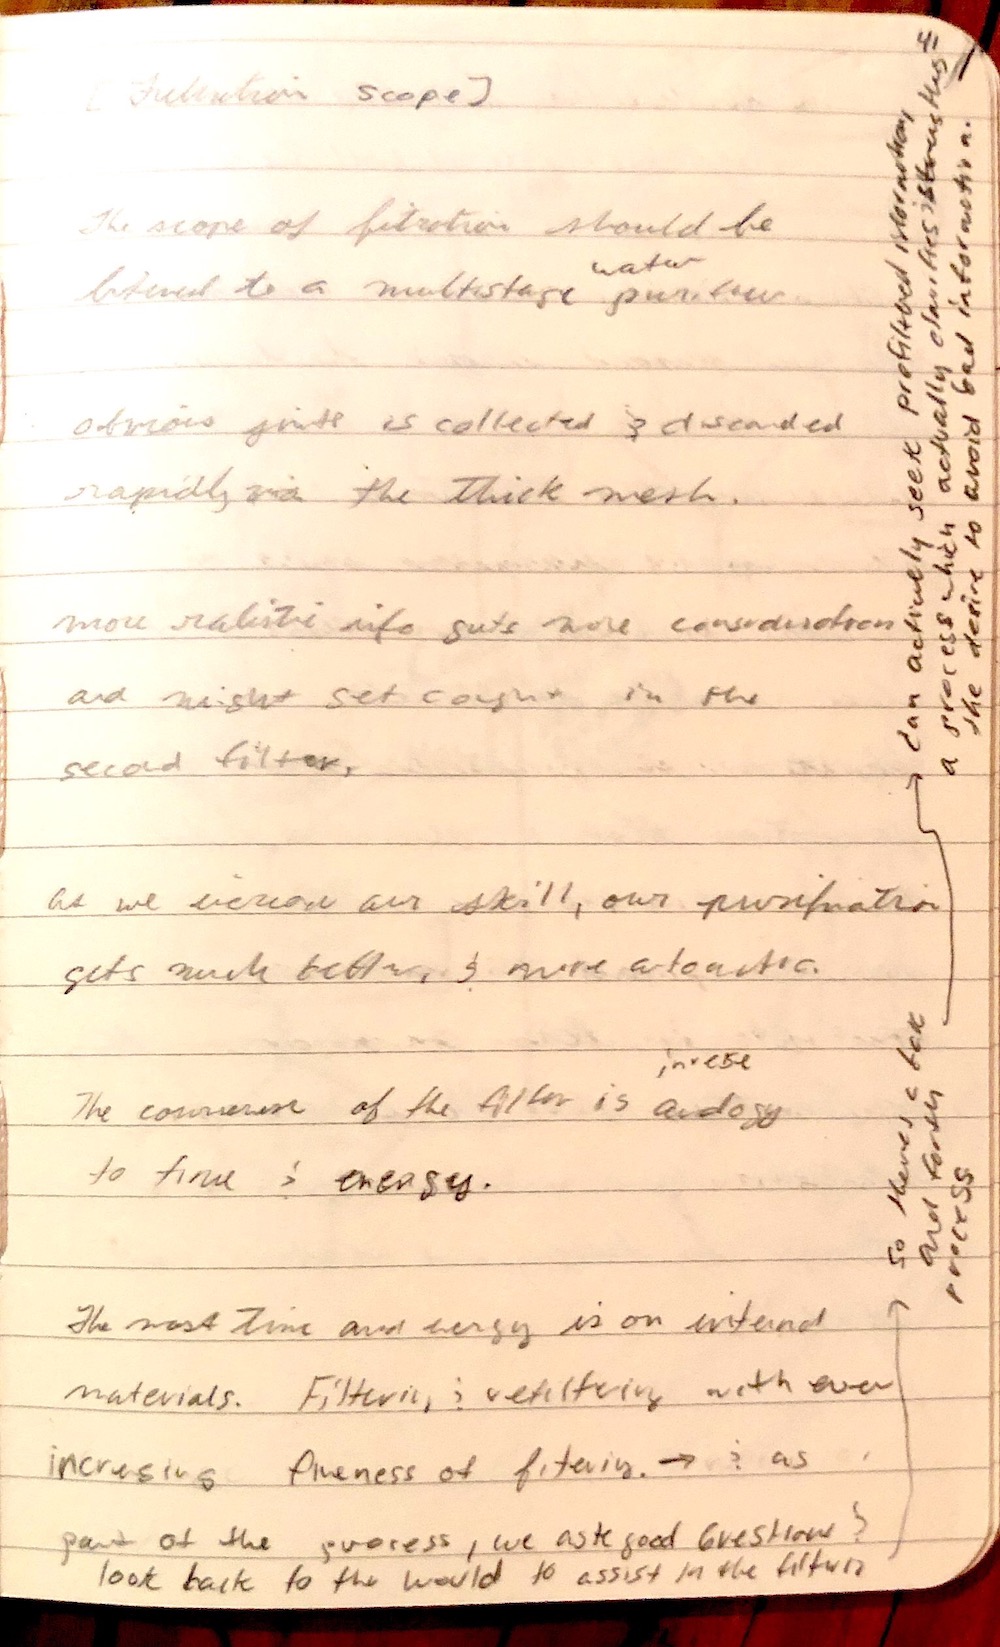 41
[Filtration scope]
The scope of fitration should be
water
to a multistage purifier
obvious is collected & discarded
rapidly via the thick mesh.
more realistic info gets more consideration
and might get caught in the
second filter.
As we increase our skill, our purification
gets much better, & more automatic.
inverse
The of the filter is analogy
to time & energy.
The most time and energy is on internal
materials. Filtering & refiltering with ever
incresing fineness of fitering. → & as
part of the process, we ask good Questions &
look back to the would to assist in the filterin
so theres a back
and forth
process
→ Can actively seek prefiltered information,
a process which actually clarifies & strengthens
the desire to avoid bad information.